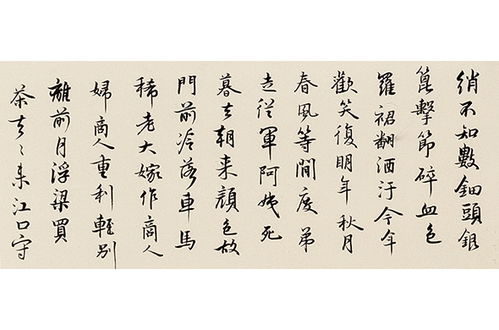 綃不知數鈿頭銀
篦擊節碎血色
羅裙翻酒汙今年
歡笑復明年秋月
春風等間度弟
走從軍阿姨死
暮去朝来顏色故
門前冷落車馬
稀老大嫁作商人
婦商人重利輕別
離前月浮梁買
茶去〻来江口守